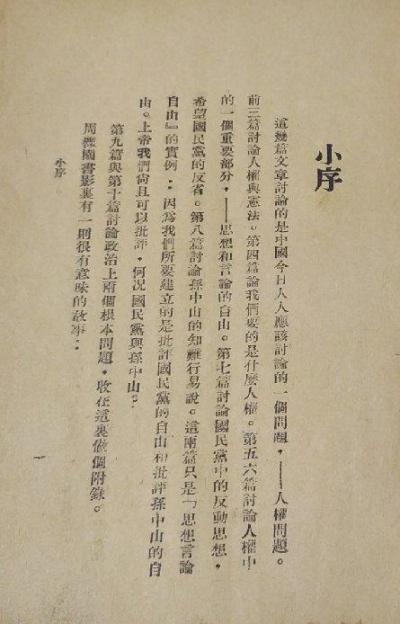 小序
這幾篇文章討論的是中國今日人人應該討論的一個問題，——人權問題。
前三篇討論人權與憲法。第四篇論我們要的是什麼人權。第五六篇討論人權中
的一個重要部分，——思想和言論的自由。第七篇討論國民黨中的反動思想，
希望國民黨的反省。第八篇討論孫中山的知難行易說。這兩篇只是『思想言論
自由』的實例：因為我們所要建立的是批評國民黨的自由和批評孫中山的自
由。上帝我們尚且可以批評，何況國民黨與孫中山？
第九篇與第十篇討論政治上兩個根本問題，收在這裏做個附錄。
周櫟園書影裏有一則很有意味的故事：
小序
一